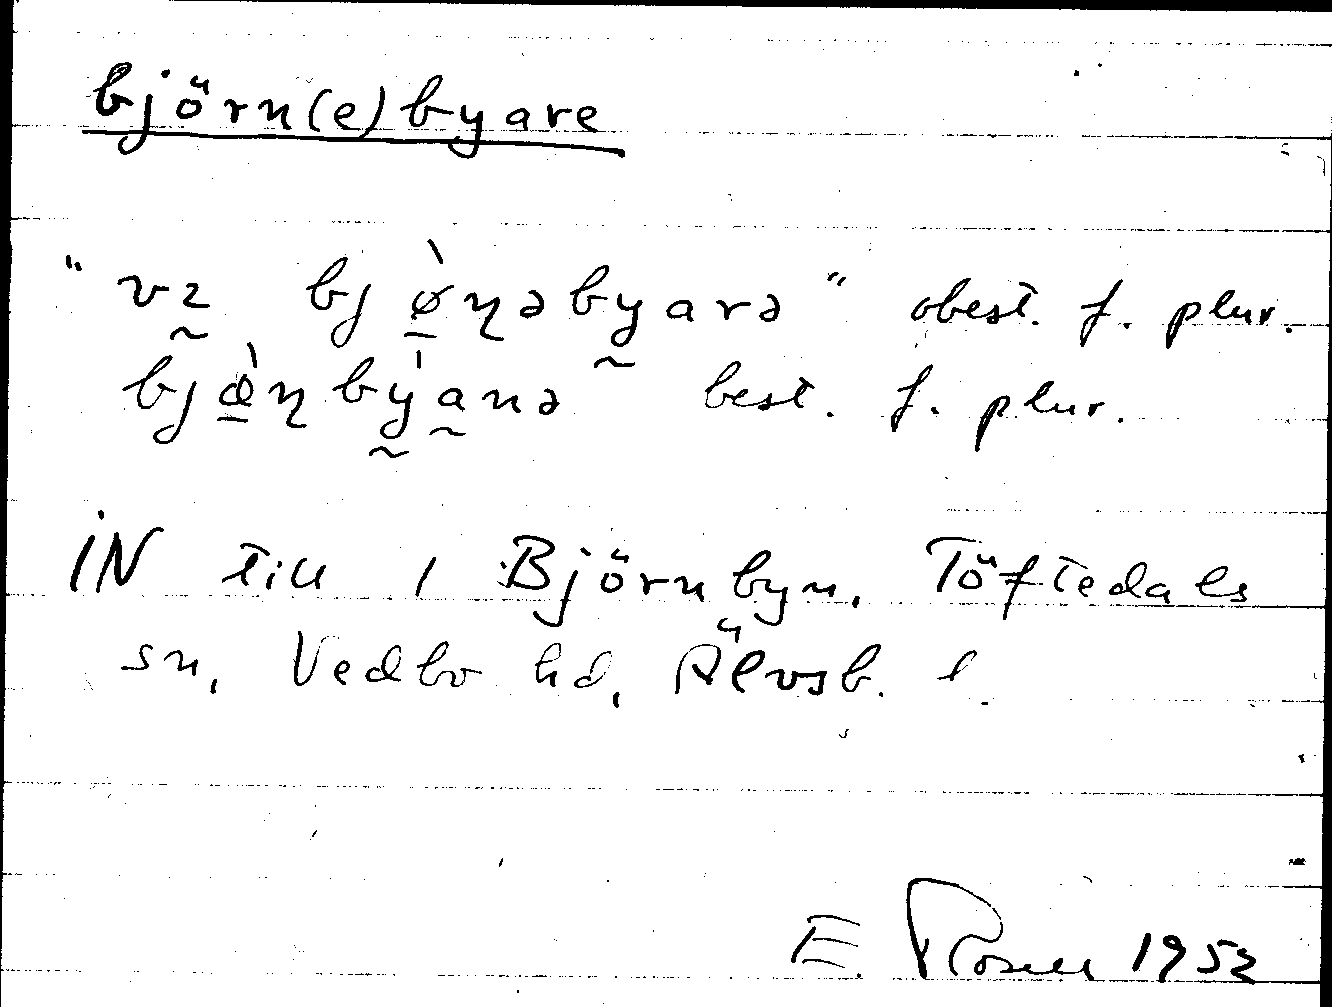 björn(e)byare
"vɿ̰ bjø̱̀ɳəby̰arə" obest. f. plur.
bjø̱̀ɳbý̰a̰nə best. f. plur.
iN till 1 Björnbyn, Töftedals
sn, Vedbo hd, Älvsb. l.
E. 1953